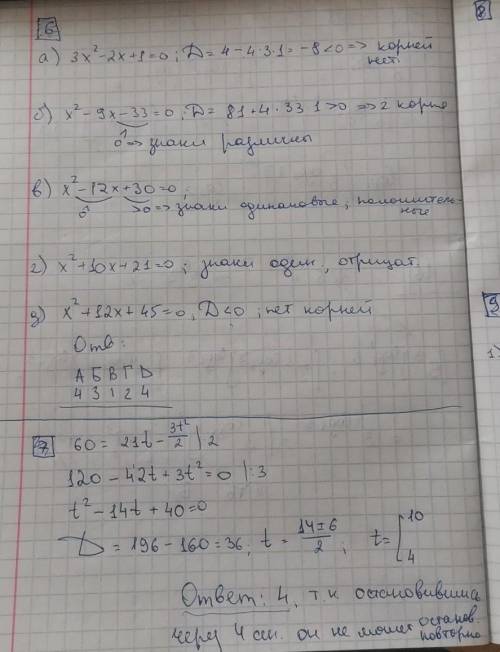 6
8
а) 3x² - 2x + 1 = 0 ; D = 4 - 4·3·1 = -8 < 0 => корней
нет.
б) x² - 9x - 33 = 0 ; D = 81 + 4 · 33 · 1 > 0 => 2 корня
=> знаки различны
в) x² - 12x + 30 = 0 ;
>0 => знаки одинаковые, положитель-
ные
г) x² + 10x + 21 = 0 ; знаки один , отрицат.
д) x² + 12x + 45 = 0 , D < 0 ; нет корней
Отв:
А Б В Г D
4 3 1 2 4
9
1)
7
60 = 21t - 3t²/2 | 2
120 - 42t + 3t² = 0 |:3
t² - 14t + 40 = 0
D = 196 - 160 = 36 ; t = (14 ± 6)/2 ; t = [ 10
4
Ответ: 4, т.к остановившись
через 4 сек. он не может останов.
повторно